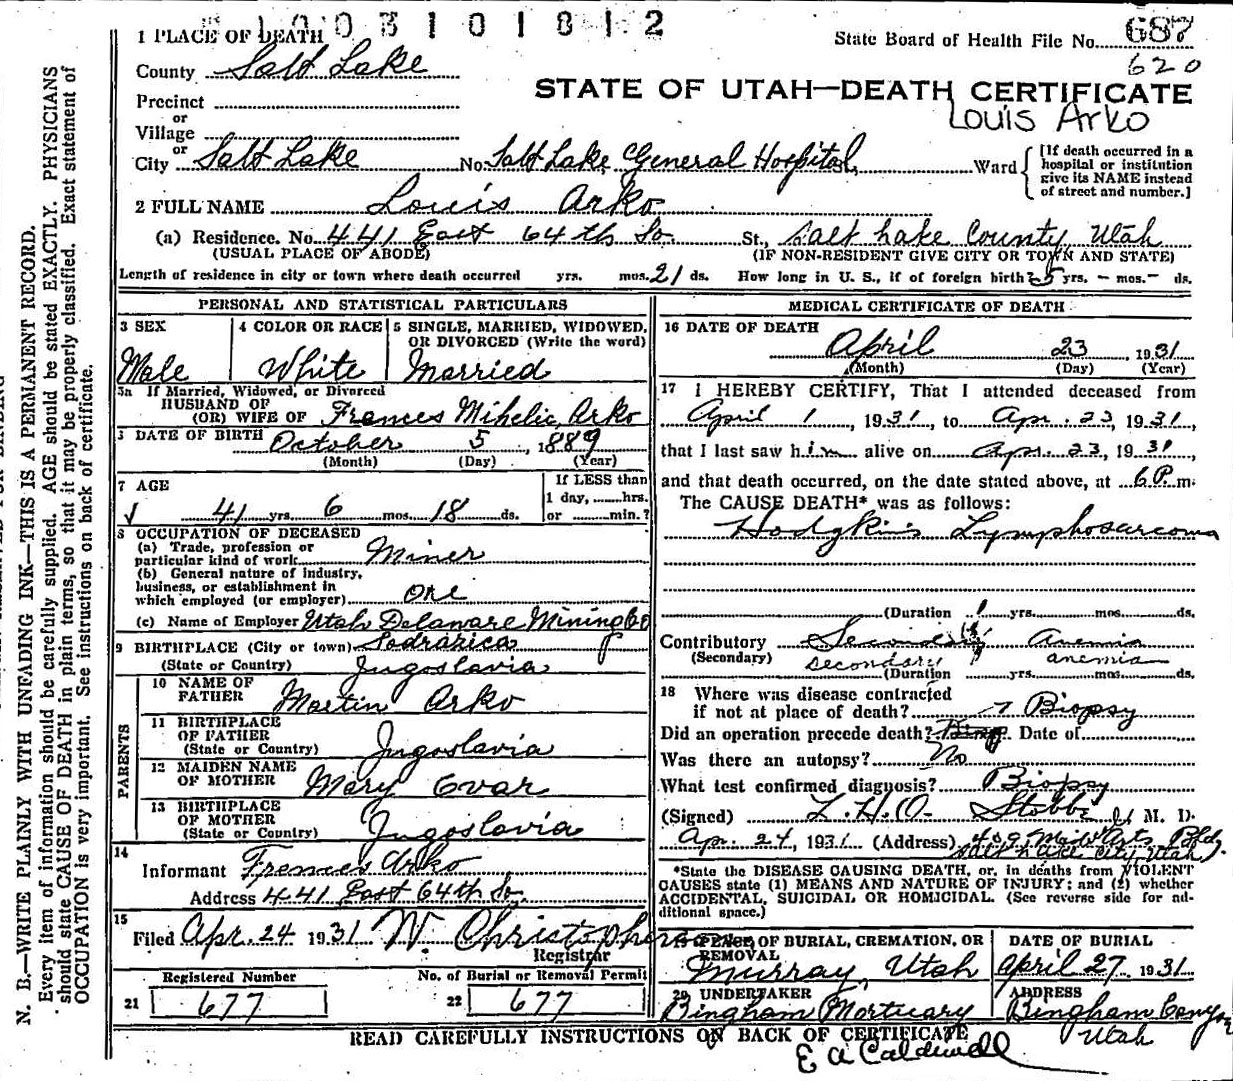 1 0 0 3 1 0 1 8 1 2
1 PLACE OF DEATH
State Board of Health File No. 687
620
County Salt Lake
STATE OF UTAH—DEATH CERTIFICATE
Louis Arko
Precinct
or
Village
or
City Salt Lake No. Salt Lake General Hospital, Ward
[If death occurred in a hospital or institution give its NAME instead of street and number.]
2 FULL NAME Louis Arko
(a) Residence. No. 441 East 64th So. St., Salt Lake County, Utah
(USUAL PLACE OF ABODE) (IF NON-RESIDENT GIVE CITY OR TOWN AND STATE)
Length of residence in city or town where death occurred yrs. mos. 21 ds. How long in U. S., if of foreign birth? 25 yrs. - mos. - ds.
PERSONAL AND STATISTICAL PARTICULARS
3 SEX
Male
4 COLOR OR RACE
White
5 SINGLE, MARRIED, WIDOWED, OR DIVORCED (Write the word)
Married
5a If Married, Widowed, or Divorced
HUSBAND OF
(OR) WIFE OF Frances Mihelic Arko
DATE OF BIRTH October 5, 1889
(Month) (Day) (Year)
7 AGE
41 yrs. 6 mos. 18 ds.
If LESS than
1 day, hrs.
or min.?
8 OCCUPATION OF DECEASED
(a) Trade, profession or
particular kind of work Miner
(b) General nature of industry,
business, or establishment in
which employed (or employer) Ore
(c) Name of Employer Utah Delaware Mining Co
9 BIRTHPLACE (City or town) Sodrazica
(State or Country) Jugoslavia
PARENTS
10 NAME OF
FATHER Martin Arko
11 BIRTHPLACE
OF FATHER
(State or Country) Jugoslavia
12 MAIDEN NAME
OF MOTHER Mary Ovar
13 BIRTHPLACE
OF MOTHER
(State or Country) Jugoslavia
14
Informant Frances Arko
Address 441 East 64th So.
15
Filed Apr. 24 1931 W. Christopherson
Registrar
Registered Number
21 677
No. of Burial or Removal Permit
22 677
MEDICAL CERTIFICATE OF DEATH
16 DATE OF DEATH
April 23, 1931
(Month) (Day) (Year)
17 I HEREBY CERTIFY, That I attended deceased from
April 1, 1931, to Apr. 23, 1931,
that I last saw him alive on Apr. 23, 1931,
and that death occurred, on the date stated above, at 6 P. m.
The CAUSE DEATH* was as follows:
Hodgkin's Lymphosarcoma
(Duration 1 yrs. mos. ds.
Contributory Secondary Anemia
(Secondary) secondary anemia
(Duration yrs. mos. ds.
18 Where was disease contracted
if not at place of death? ? Biopsy
Did an operation precede death? Date of
Was there an autopsy? No
What test confirmed diagnosis? Biopsy
(Signed) L. H. O. Stobbe M. D.
Apr. 24, 1931 (Address) 409 Med Arts Bldg.
Salt Lake City, Utah
*State the DISEASE CAUSING DEATH, or, in deaths from VIOLENT
CAUSES state (1) MEANS AND NATURE OF INJURY; and (2) whether
ACCIDENTAL, SUICIDAL OR HOMICIDAL. (See reverse side for ad-
ditional space.)
19 PLACE OF BURIAL, CREMATION, OR
REMOVAL
Murray, Utah
DATE OF BURIAL
April 27, 1931
20 UNDERTAKER
Bingham Mortuary
ADDRESS
Bingham Canyon
Utah
READ CAREFULLY INSTRUCTIONS ON BACK OF CERTIFICATE
E A Caldwell
N. B.—WRITE PLAINLY WITH UNFADING INK—THIS IS A PERMANENT RECORD.
Every item of information should be carefully supplied. AGE should be stated EXACTLY. PHYSICIANS
should state CAUSE OF DEATH in plain terms, so that it may be properly classified. Exact statement of
OCCUPATION is very important. See instructions on back of certificate.